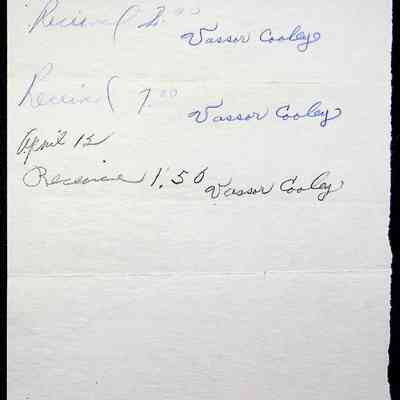 Received 2.00 Vassor Cooley
Received 7.00 Vassor Cooley
April 12
Receive 1.50 Vassor Cooley